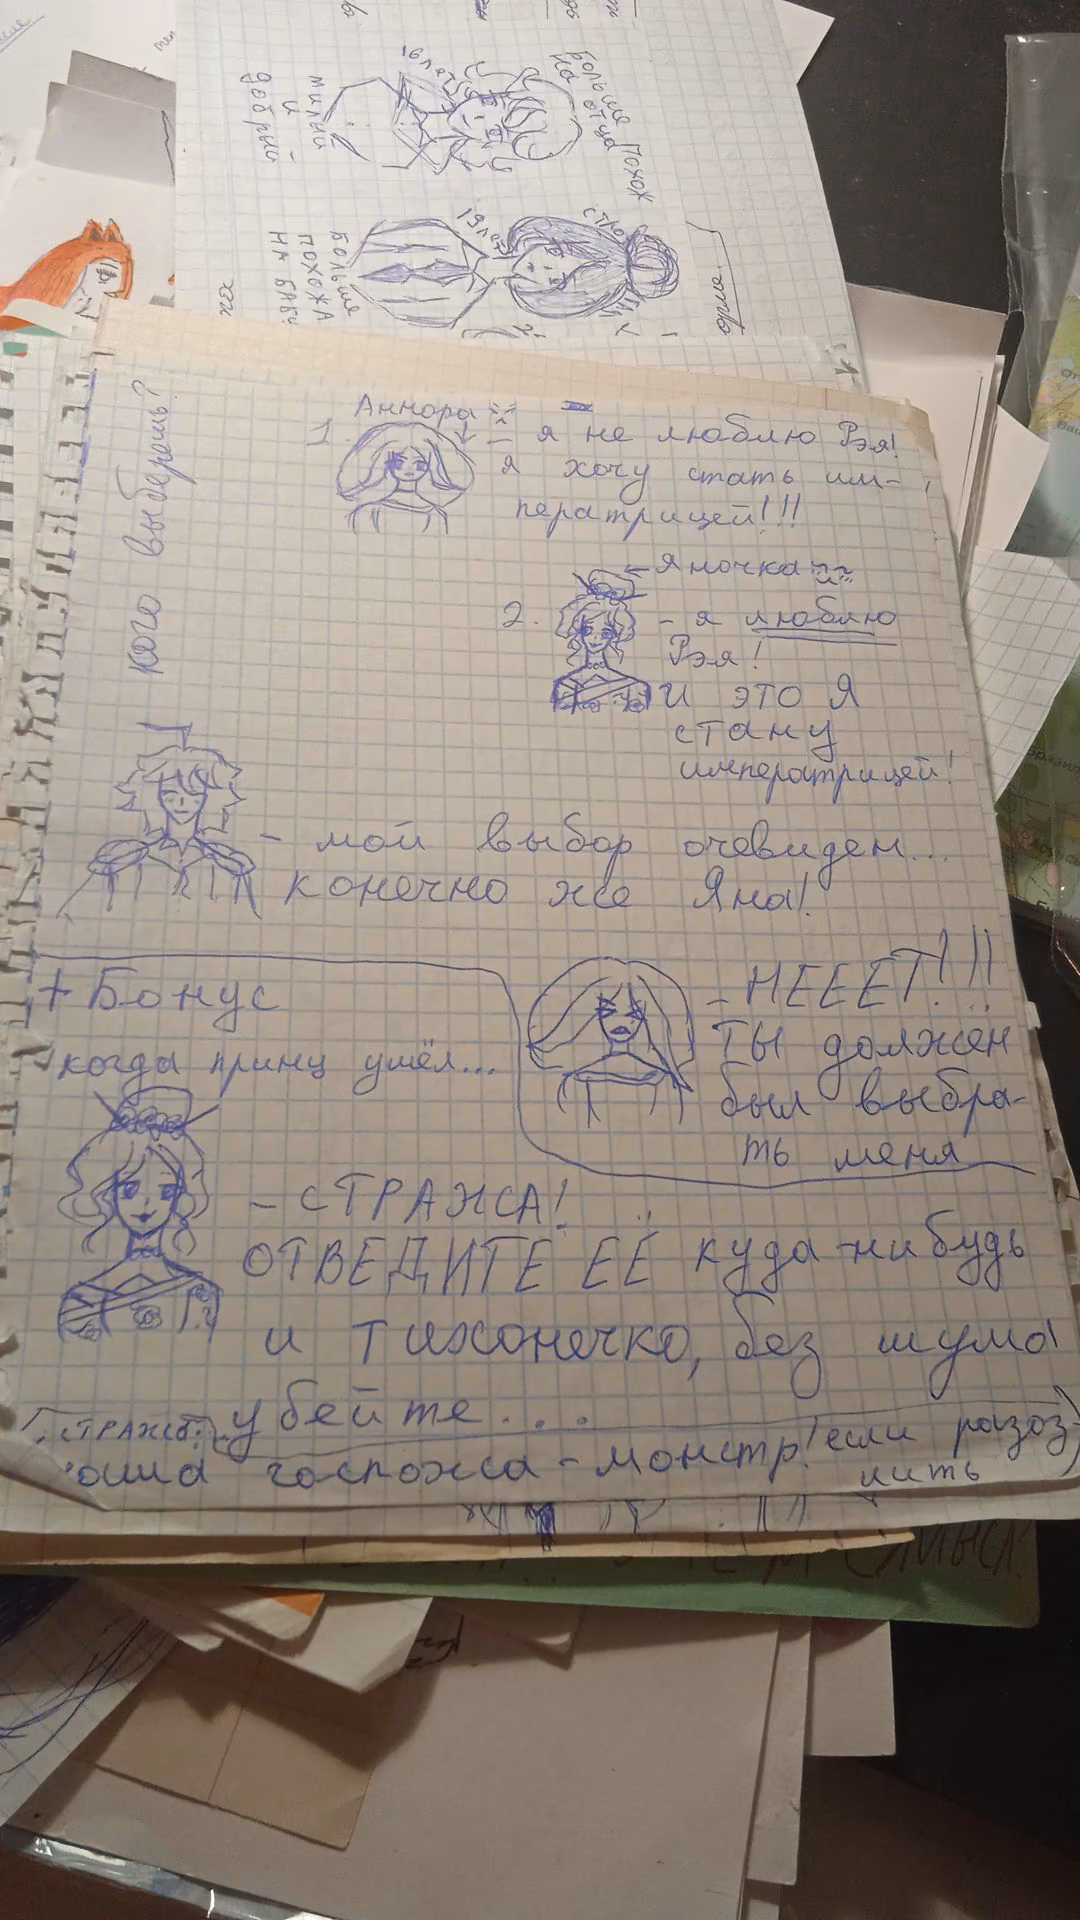 больше похож
на отца
16 лет
милый
и
добрый
19 лет
больше
похожа
на
кого выберешь?
Аннора
1.
- я не люблю Рэя!
я хочу стать им-
ператрицей!!!
Яночка
2.
- я люблю
Рэя!
И это Я
стану
императрицей!
- мой выбор очевиден...
конечно же Яна!
- НЕЕЕТ!!!
ТЫ должен
был выбра-
ть меня
+ Бонус
когда принц ушёл...
- СТРАЖА!
ОТВЕДИТЕ ЕЁ куда-нибудь
и тихонечко, без шума
убейте...
госпожа - монстр! если разоз
лить)